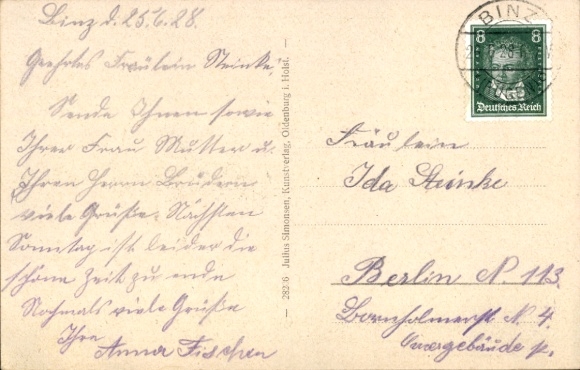 Binz d. 25.6.28.
Geehrtes Fräulein Steinke,
Sende Ihnen sowie
Ihrer Frau Mutter u.
Ihren Herrn Brüdern
viele Grüße. Nächsten
Sonntag ist leider die
schöne Zeit zu ende
Nochmals viele Grüße
Ihre
Anna Fischer
28326 Julius Simonsen, Kunstverlag, Oldenburg i. Holst.
BINZ
8 8
Deutsches Reich
Fräulein
Ida Steinke
Berlin N. 113.
Bornholmerst N. 4.
Quergebäude p.